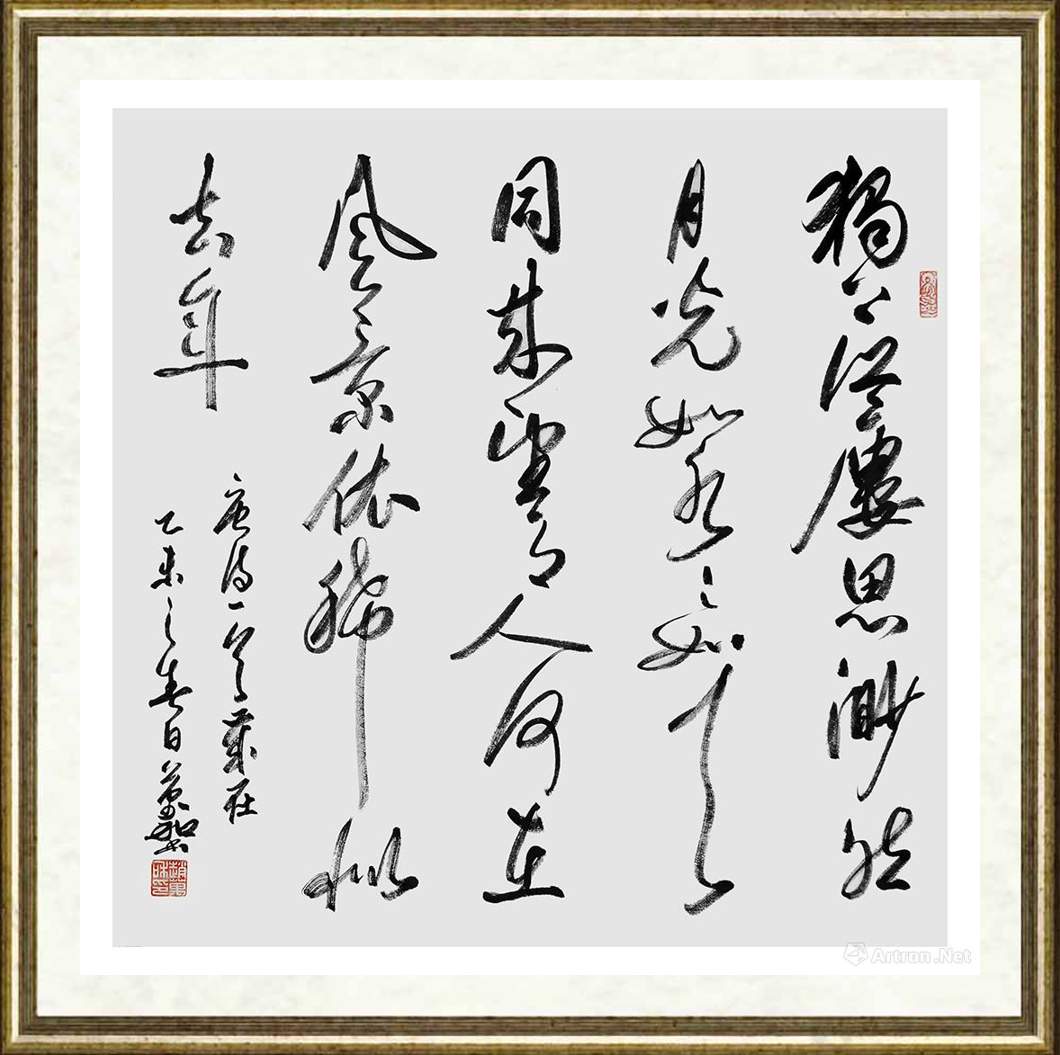 獨上江樓思渺然
月光如水〻如天
同來望月人何在
風景依稀似
去年
唐詩一首歲在
乙未之春日萬和書
Artron.Net